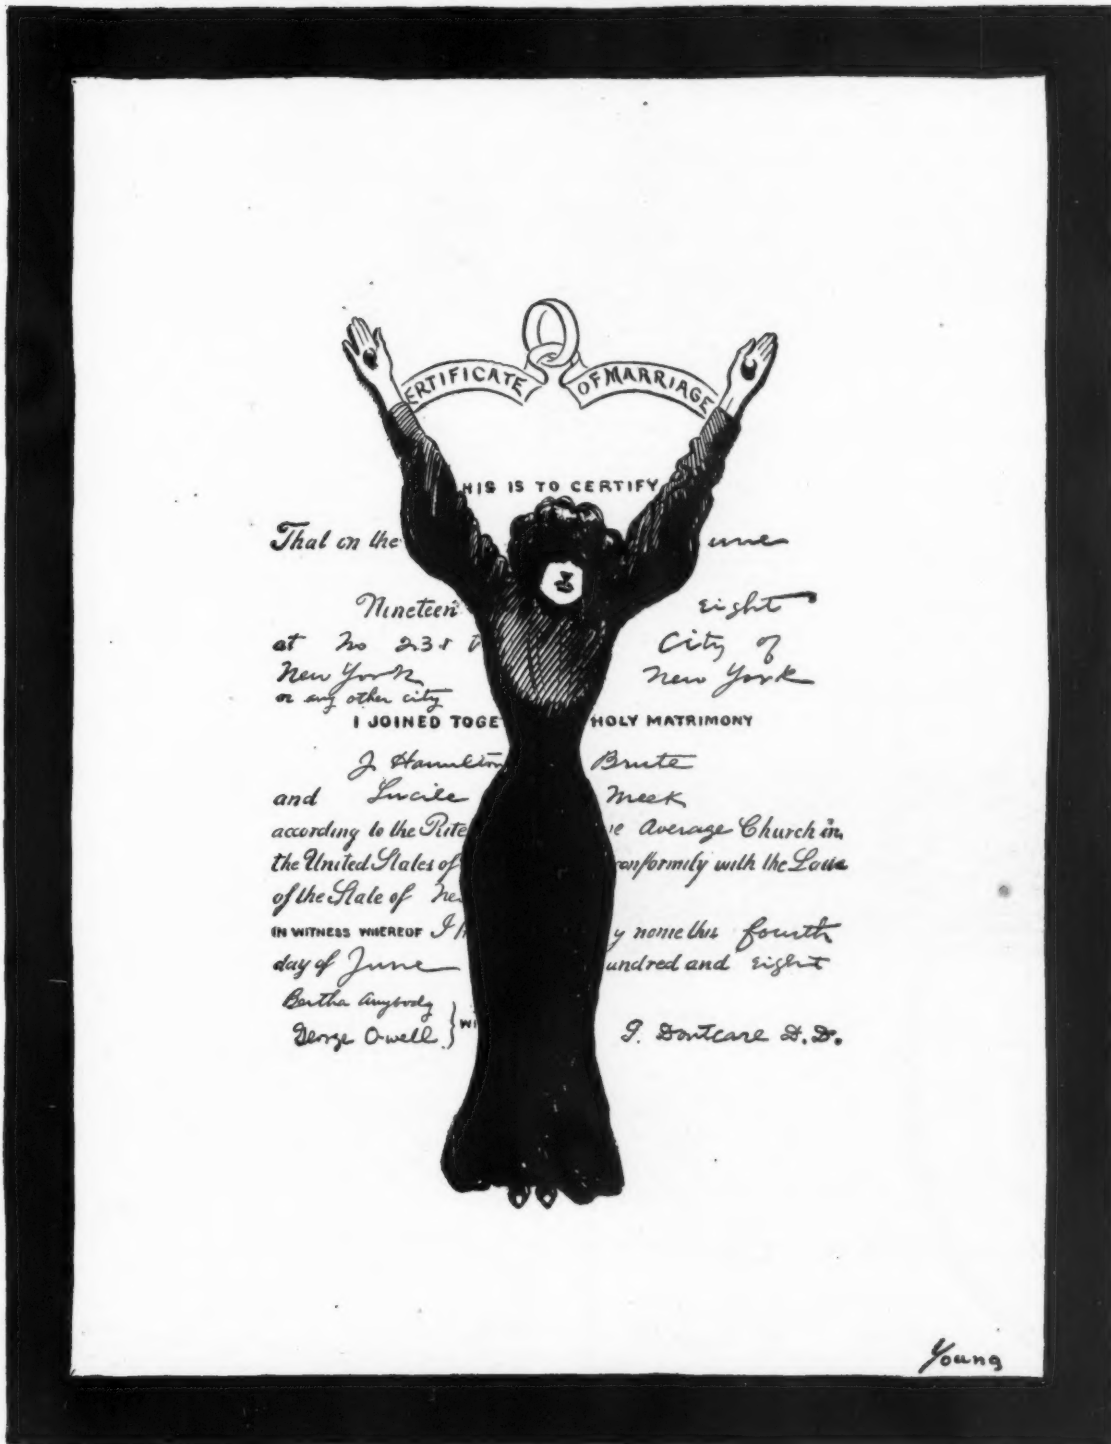 ERTIFICATE OF MARRIAGE
HIS IS TO CERTIFY
That on the une
Nineteen eight
at No 238 City of
New York New York
or any other city
I JOINED TOGE HOLY MATRIMONY
J. Hamilton Brute
and Lucile Meek
according to the Rite e Average Church in
the United States of conformity with the Laws
of the State of Ne
IN WITNESS WHEREOF I y name this fourth
day of June undred and eight
Bertha Anybody
George Owell } WI G. Dontcare D.D.
Young